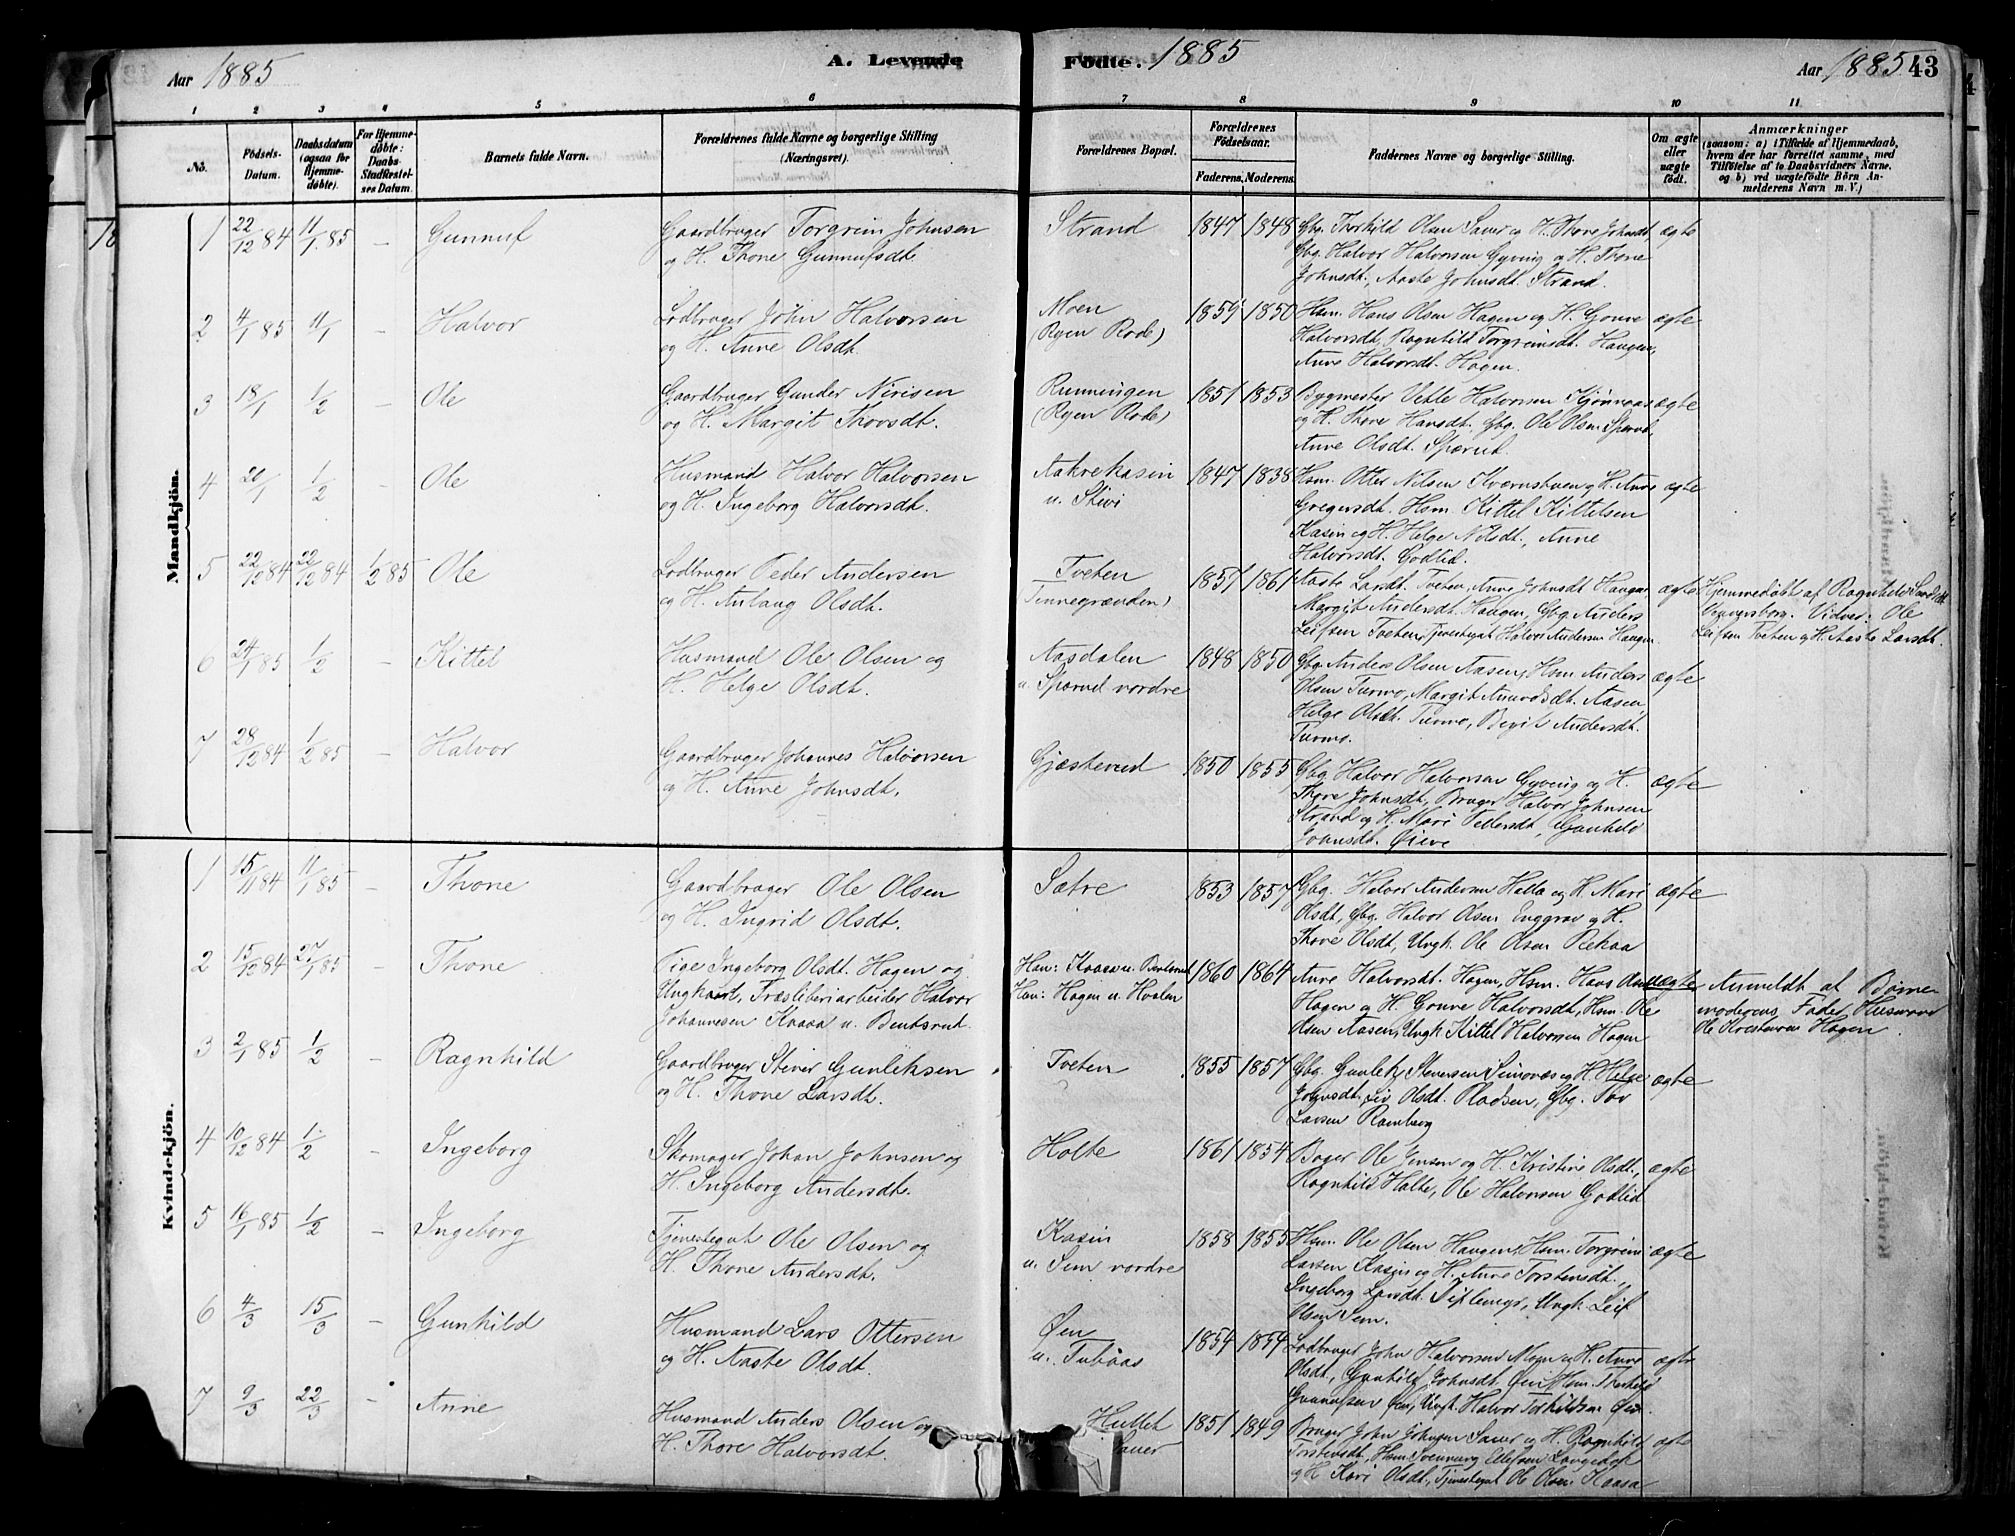 Aar 1885 A. Levende Fødte. 1885 Aar 1885 43
1 2 3 4 5 6 7 8 9 10 11
No.
Födsels-Datum.
Daabsdatum (ogsaa for Hjemmedøbte).
For Hjemmedøbte: Daabs-Stadfæstelses Datum.
Barnets fulde Navn.
Forældrenes fulde Navne og borgerlige Stilling (Næringsvei).
Forældrenes Bopæl.
Forældrenes Fødselsaar.
Faderens. Moderens.
Faddernes Navne og borgerlige Stilling.
Om ægte eller uægte født.
Anmærkninger
(saasom: a) i Tilfælde af Hjemmedaab, hvem der har forrettet samme, med Tilføielse af to Daabsvidners Navne, og b) ved uægtefødte Børn Anmelderens Navn m. V.)
Mandkjön.
1 22/12 84 11/1 85 – Gunnuf Gaardbruger Torgrim Johnsen Strand 1847 1848 Gbg. Thorkild Olsen Sauer og H. Thore Johnsdt. ægte
og H. Thone Gunnufsdt. Gbg. Halvor Halvorsen Gyving og H. Thone
Johnsdt., Aaste Johnsdt. Strand.
2 4/1 85 11/1 – Halvor Lodbruger John Halvorsen Moen 1859 1850 Hsm. Hans Olsen Hagen og H. Gonve ægte
og H. Anne Olsdt. (Ryen Rode) Halvorsdt., Ragnhild Torgrimsdt. Haugen,
Anne Halvorsdt. Hagen.
3 18/1 1/2 – Ole Gaardbruger Gunder Nirisen Runningen 1851 1853 Bygmester Vetle Halvorsen Kjønnaas ægte
og H. Margit Thovsdt. (Ryen Rode) og H. Thore Hansdt. Gbg. Ole Olsen Sperud,
Anne Olsdt. Sperud.
4 20/1 1/2 – Ole Husmand Halvor Halvorsen Aakrekasin 1847 1838 Hsm. Otter Nilsen Kvernstuen og H. Anne ægte
og H. Ingeborg Halvorsdt. u. Stivi Gregersdt. Hsm. Kittel Kittelsen
Kasin og H. Helge Nilsdt., Anne
Halvorsdt. Godlid.
5 22/12 84 22/12 84 1/2 85 Ole Lodbruger Peder Andersen Tveten 1857 1861 Aaste Larsdt. Tveten, Anne Johnsdt. Haugen ægte Hjemmedøbt af Ragnhild
og H. Anlaug Olsdt. Tinnegrænden) Margit Andersdt. Haugen, Gbg. Anders Vidner: Ole
Leifsen Tveten, Tjenestegut Halvor Andersen Haugen Leifsen Tveten og H. Aaste Larsdt.
6 24/1 85 1/2 – Kittel Husmand Ole Olsen og Aasdalen 1848 1850 Gbg. Anders Olsen Aasen, Hsm. Anders ægte
H. Helge Olsdt. u. Sperud nordre Olsen Turmo, Margit Aasen,
Helge Olsdt. Turmo, Birgit Andersdt.
Turmo.
7 28/12 84 1/2 85 – Halvor Gaardbruger Johannes Halvorsen Gjæsterud 1850 1855 Gbg. Halvor Halvorsen Gyving og H. ægte
og H. Anne Johnsdt. Thore Johnsdt, Bruger Halvor Johnsen
Strand og H. Mari Pedersdt, Gunhild
Johnsdt. Øieve
Kvindekjön.
1 15/11 84 11/1 85 – Thone Gaardbruger Ole Olsen Sætre 1853 1857 Gbg. Halvor Andersen Halla og H. Mari ægte
og H. Ingrid Olsdt. Olsdt, Gbg. Halvor Olsen Enggrav og H.
Thore Olsdt, Ungk. Ole Olsen Rekaa
2 15/12 84 27/1 85 – Thone Pige Ingeborg Olsdt. Hagen og Han: Kaasa u. Bentsrud 1860 1864 Anne Halvorsdt. Hagen, Hsm. Hans Olsen uægte Anmeldt af Barne-
Ungkarl, Træsliberiarbeider Halvor Hun: Hagen u. Hvalen Hagen og H. Gonve Halvorsdt, Hsm. Ole moderens Fader, Husmand
Johannesen Kaasa u. Bentsrud. Olsen Aasen, Ungk. Kittel Halvorsen Hagen Ole Kristensen Hagen.
3 2/1 85 1/2 – Ragnhild Gaardbruger Steiner Gunleksen Tveten 1855 1857 Gbg. Gunlek Steinersen og H. Helge ægte
og H. Thone Larsdt. Johnsdt. Liv Olsdt. Oladsen, Gbg. Tov
Larsen Ramberg
4 10/12 84 1/2 – Ingeborg Skomager Johan Johnsen og Holte 1861 1854 Bager Ole Jensen og H. Kristine Olsdt., ægte
H. Ingeborg Andersdt. Ragnhild Holte, Ole Halvorsen Godlid
5 16/1 85 1/2 – Ingeborg Tjenestegut Ole Olsen og Kasin 1858 1855 Hsm. Ole Olsen Haugen, Hsm. Torgrim ægte
H. Thone Andersdt. u. Sem nordre Larsen Kasin og H. Anne Torstensdt.,
Ingeborg Larsdt. Ungk. Leif
Olsen Sem.
6 4/3 15/3 – Gunhild Husmand Lars Ottersen Øen 1854 1854 Lodbruger John Halvorsen Moen og H. Anne ægte
og H. Aaste Olsdt. u. Tubaas Olsdt, Gunhild Johnsdt. Øen, Hsm. Thorkild
Gunnufsen Øen, Ungk. Halvor Torkildsen Øen.
7 9/3 22/3 – Anne Husmand Anders Olsen og Hullet 1851 1849 Bruger John Johnsen Sauer og H. Ragnhild ægte
H. Thore Halvorsdt. Sauer Torstensdt, Hsm Svennung Ellefsen
og H. Kari Olsdt., Tjenestegut Ole Olsen Kaasa